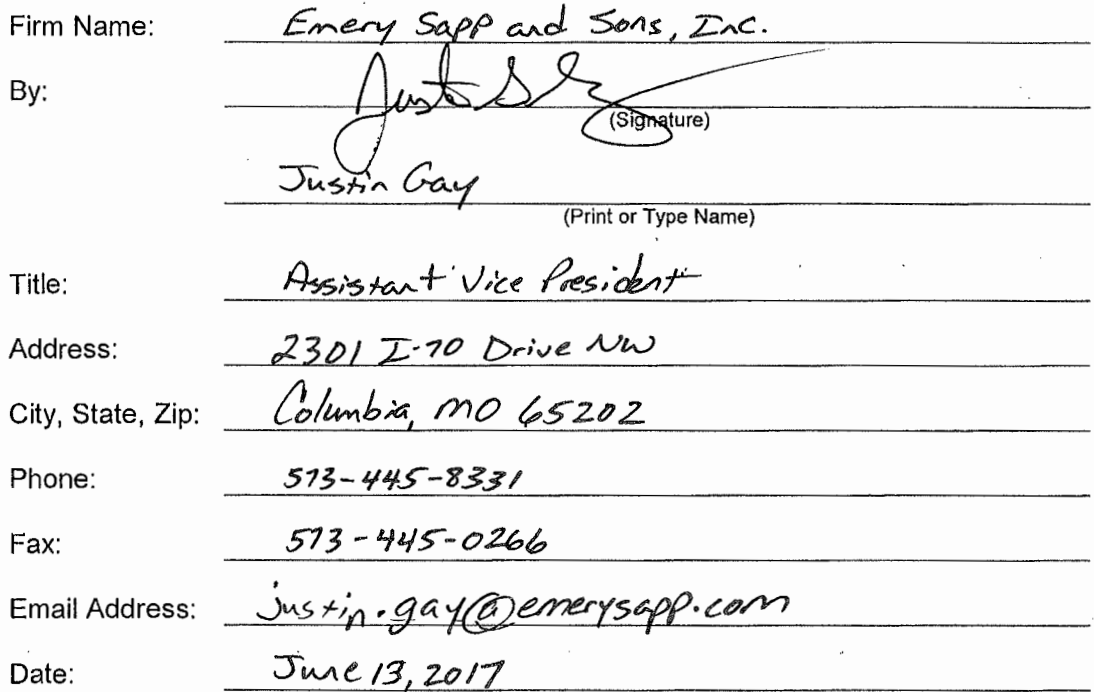 Firm Name: Emery Sapp and Sons, Inc.
By:
(Signature)
Justin Gay
(Print or Type Name)
Title: Assistant Vice President
Address: 2301 I-70 Drive NW
City, State, Zip: Columbia, MO 65202
Phone: 573-445-8331
Fax: 573-445-0266
Email Address: justin.gay@emerysapp.com
Date: June 13, 2017